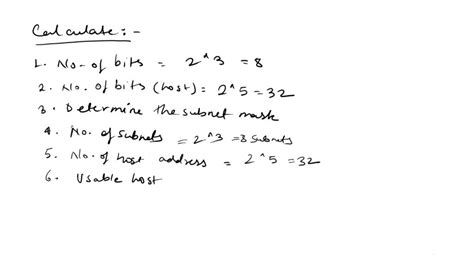 Calculate:-
1. No. of bits = 2^3 = 8
2. No. of bits (host) = 2^5 = 32
3. Determine the subnet mask
4. No. of subnets = 2^3 = 8 subnets
5. No. of host address = 2^5 = 32
6. Usable host